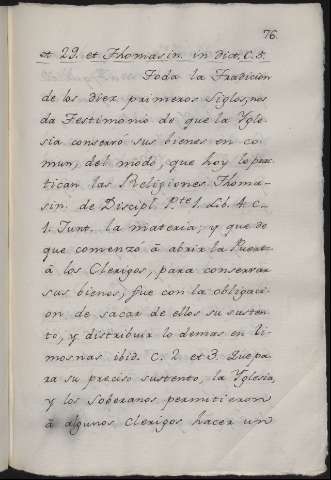 76.
et 29. et Thomasin. in dict. C. 5.
Toda la Tradicion
de los diez primeros Siglos, nos
da Testimonio de que la Ygle-
sia conservó sus bienes en co-
mun, del modo, que hoy lo prac-
tican las Religiones. Thoma-
sin. de Discipl. P.te 1. Lib. 4. C.
1. Junt. la materia; y que de
que comenzó á abrir la Puerta
á los Clerigos, para conservar
sus bienes, fue con la obligaci-
on de sacar de ellos su susten-
to, y distribuir lo demas en li-
mosnas ibid. C. 2. et 3. Que pa-
ra su preciso sustento, la Yglesia,
y los Soberanos permitieron
á algunos Clerigos hacer un